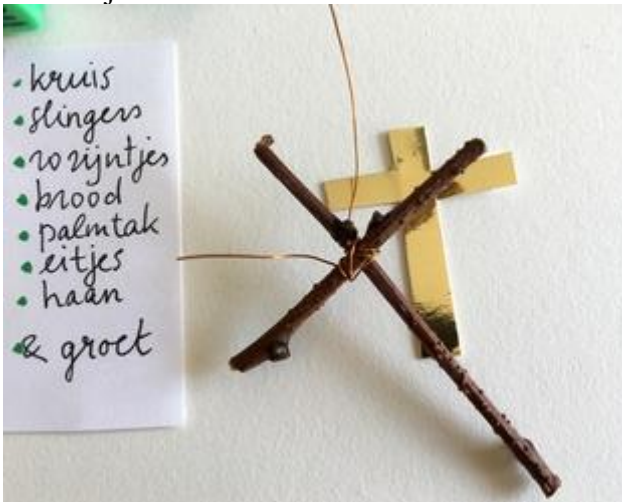 • kruis
• slingers
• rozijntjes
• brood
• palmtak
• eitjes
• haan
• & groet